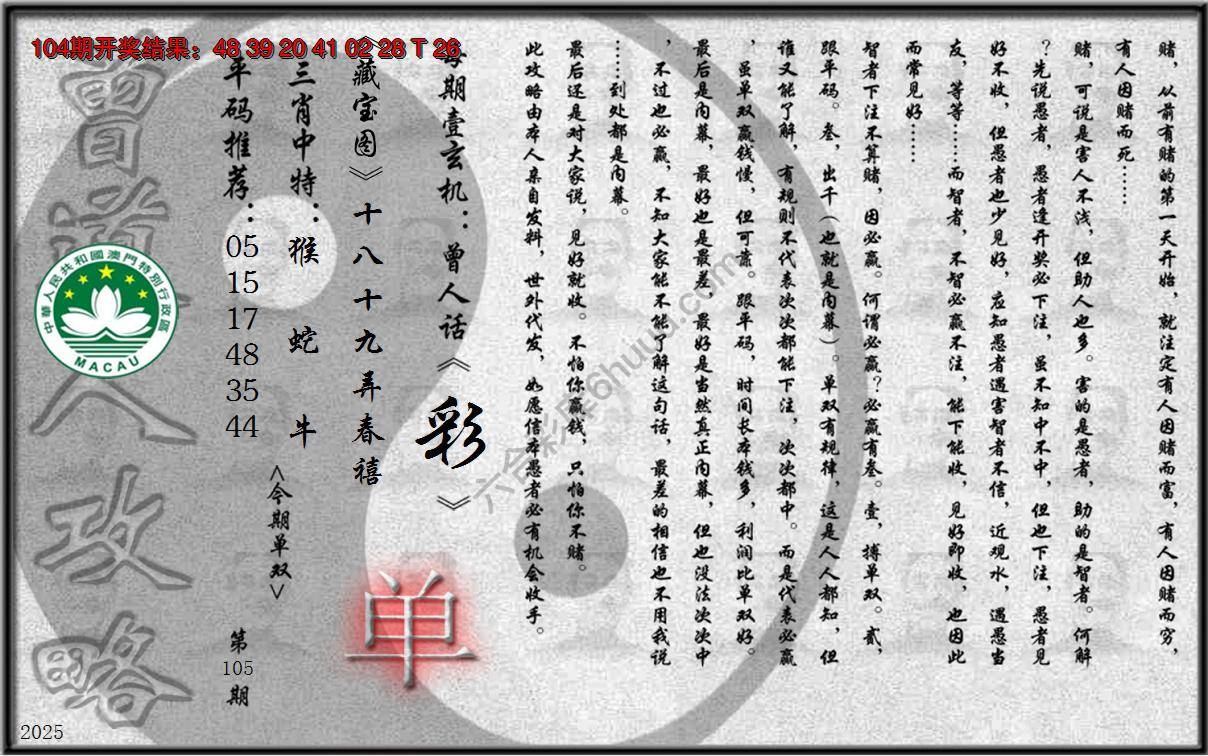 104期开奖结果：48 39 20 41 02 28 T 26
赌，从前有赌的第一天开始，就注定有人因赌而富，有人因赌而穷，
有人因赌而死……
赌，可说是害人不浅，但助人也多。害的是愚者，助的是智者。何解
？先说愚者，愚者逢开奖必下注，虽不知中不中，但也下注，愚者见
好不收，但愚者也少见好，应知愚者遇害智者不信，近观水，遇愚当
友，等等……而智者，不智必赢不注，能下能收，见好即收，也因此
而常见好……
智者下注不算赌，因必赢。何谓必赢？必赢有叁。壹，搏单双。贰，
跟平码。叁，出千（也就是内幕）。单双有规律，这是人人都知，但
谁又能了解，有规则不代表次次都能下注，次次都中。而是代表必赢
，虽单双赢钱慢，但可靠。跟平码，时间长本钱多，利润比单双好。
最后是内幕，最好也是最差，最好是当然真正内幕，但也没法次次中
，不过也必赢，不知大家能不能了解这句话，最差的相信也不用我说
……到处都是内幕。
最后还是对大家说，见好就收。不怕你赢钱，只怕你不赌。
此攻略由本人亲自发料，世外代发，如愿信本愚者必有机会收手。
每期壹玄机：曾人话《彩》
《藏宝图》十八十九弄春禧
三肖中特：猴 蛇 牛
平码推荐：05 15 17 48 35 44
<今期单双>
单
第105期
曾道人攻略
中華人民共和國澳門特別行政區
MACAU
六合彩库6huuu.com
2025